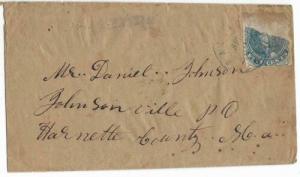 Mr. Daniel Johnson
Johnson ville P O
Harnette County N.Ca